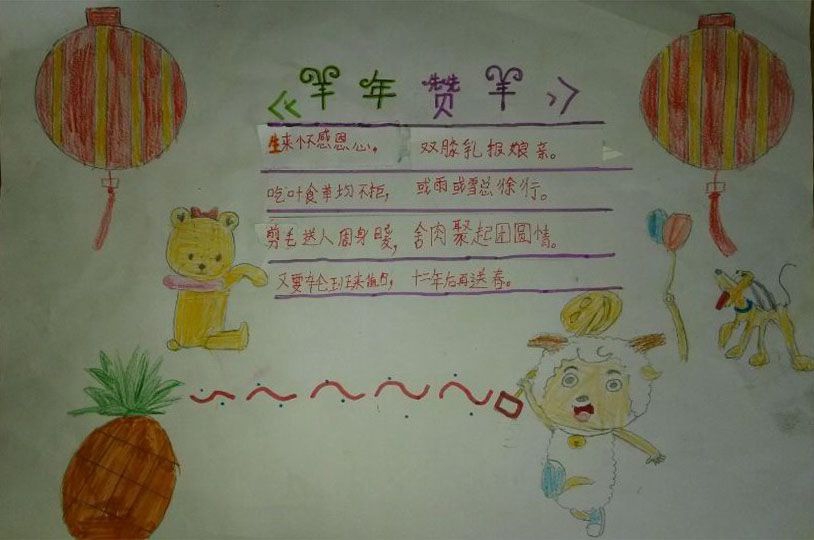 《羊年赞羊》
生来怀感恩心， 双膝乳报娘亲。
吃叶食草均不拒， 或雨或雪总徐行。
剪毛送人周身暖，舍肉聚起团圆情。
又要轮班来值， 十二年后再送春。